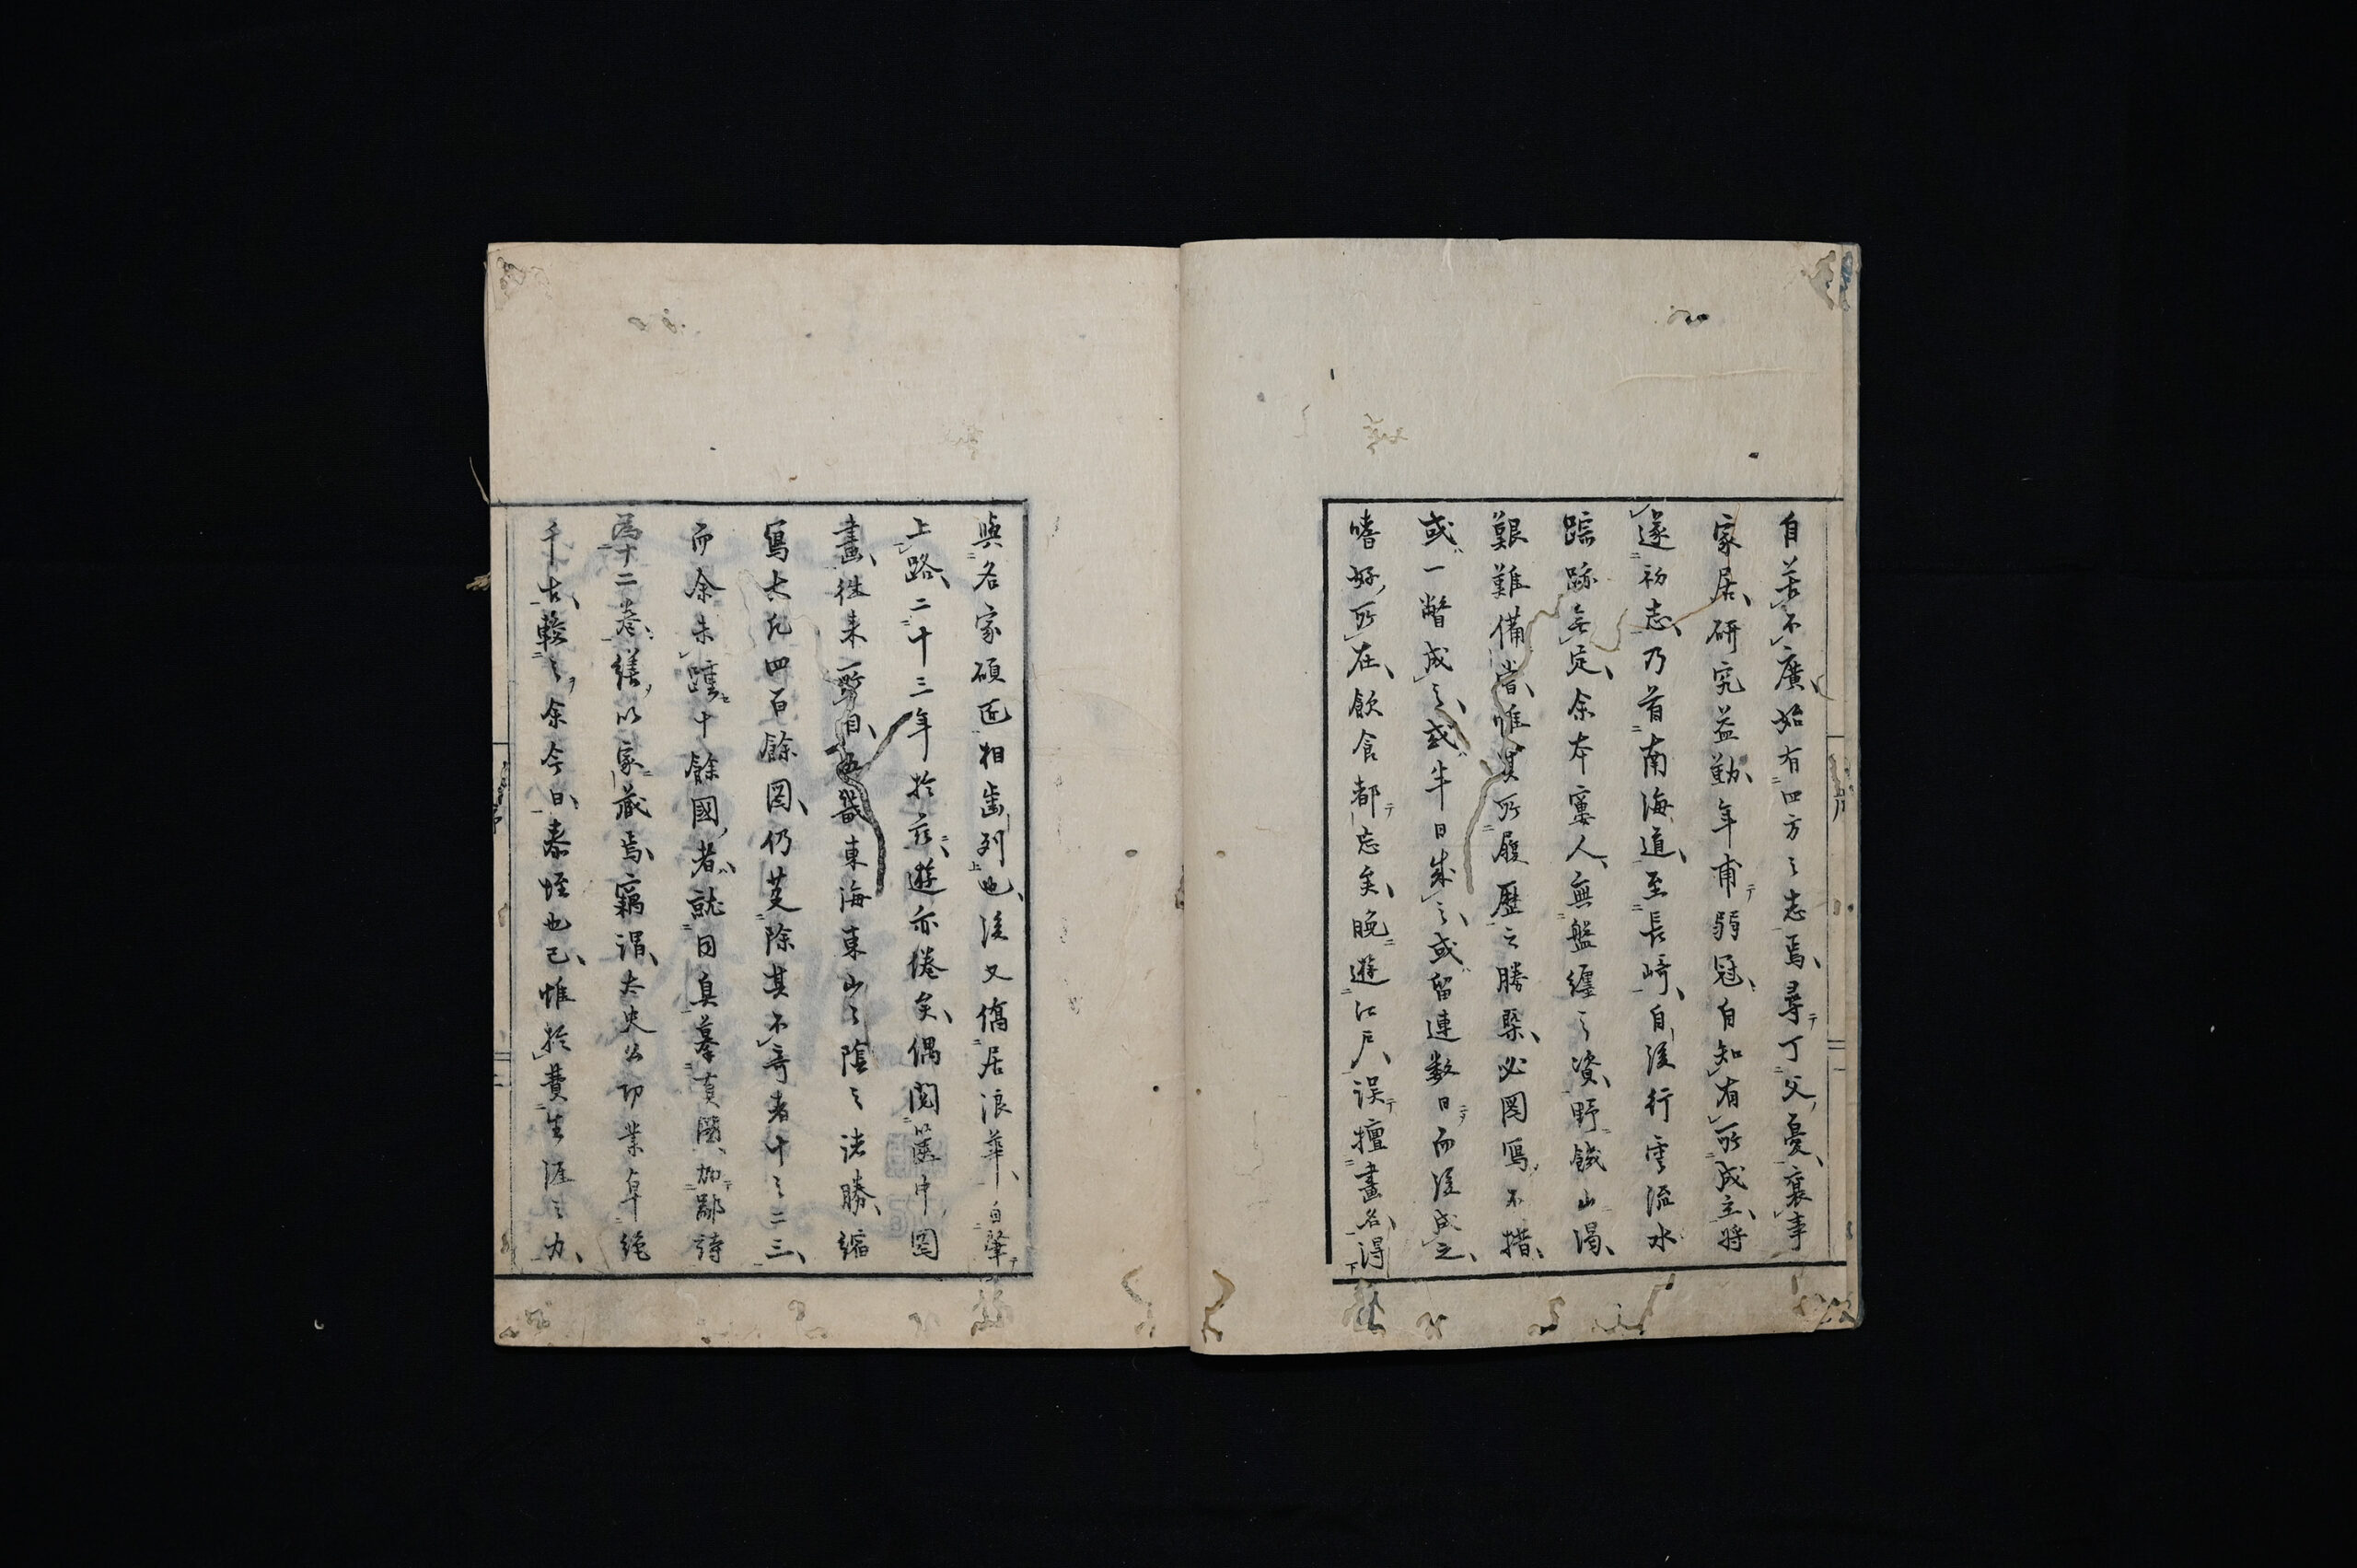 自苦不廣始有四方之志焉尋丁父憂襄事
家居研究益勤年甫弱冠自知有所成立將
遂初志乃首南海道至長崎自後行雲流水
踪跡無定余本窶人無盤纏之資野餓山渴
艱難備嘗惟其所履歷之勝槩必圖寫不措
或一瞥成之或半日成之或留連数日而後成之
嗜好所在飲食都忘矣晚遊江戶误擅畫名得
與名家碩匠相齒列也後又僑居浪華自肇
上路二十三年於茲遊亦倦矣偶閱篋中圖
畫徃来一瞥目五畿東海東山之陰之諸勝縮
寫大凡四百餘圖仍芟除其不奇者十之二三
而余未踵十餘國者就因真摹真闕加鄙詩
為十二卷繕以家藏焉竊謂太史公功業卓絶
千古輳之余今日泰恠也已惟於費生涯之力